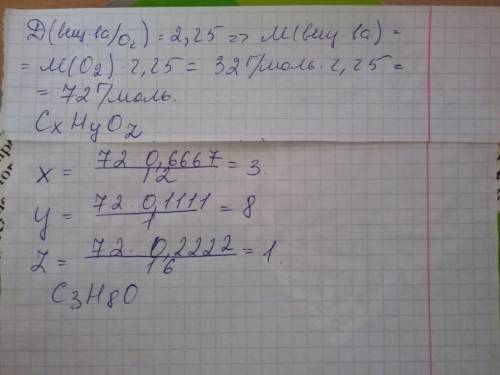 Д(вещ-ва/O₂) = 2,25 => M(вещ-ва) =
= M(O₂) · 2,25 = 32 г/моль · 2,25 =
= 72 г/моль.
CxHyOz
x = 72 · 0,6667 / 12 = 3.
y = 72 · 0,1111 / 1 = 8
z = 72 · 0,2222 / 16 = 1.
C₃H₈O